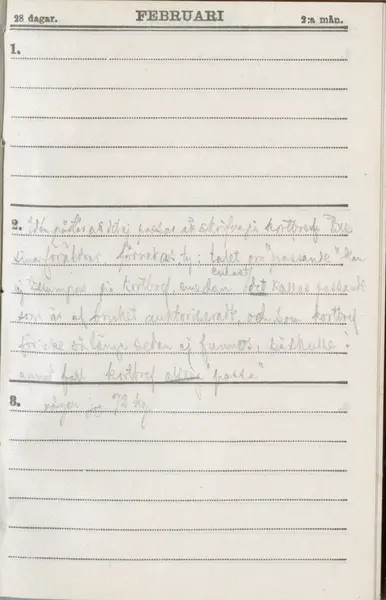 28 dagar. FEBRUARI 2:a mån.
1.
2. att ej passar att skrifva på kortbref till
sina föräldrar förnekas ty: talet om "passande" kan
ej på kortbref emedan endast det kallas passande
som är af bruket auktoriseradt, och som kortbref
för icke så länge sedan ej funnos, så skulle i
annat fall kortbref aldrig "passa"
3. väger jag 72 kg